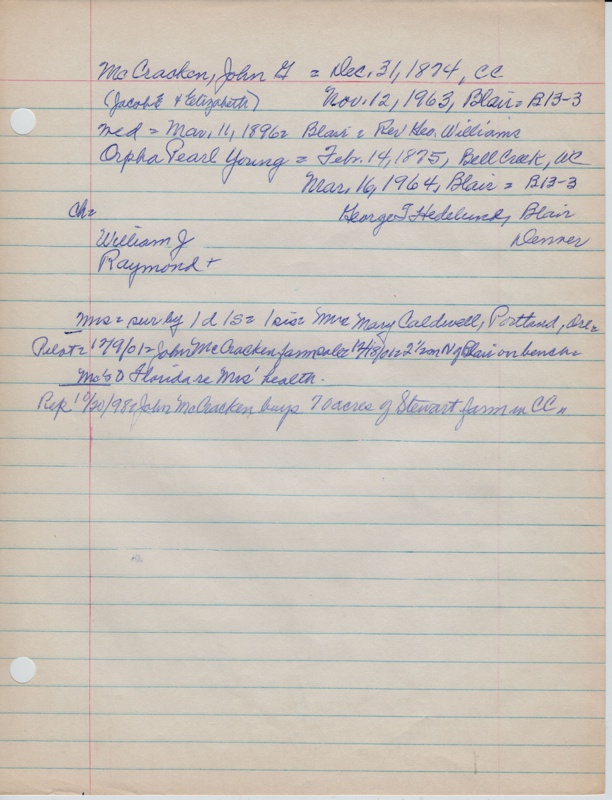 McCracken, John G = Dec. 31, 1874, CC
(Jacob E & Elizabeth) Nov. 12, 1963, Blair = B13-3
med = Mar. 11, 1896 = Blair = Rev Geo. Williams
Orpha Pearl Young = Febr. 14, 1875, Bell Creek, WC
Mar. 16, 1964, Blair = B13-3
Ch = George T Hedelund, Blair
William J Denver
Raymond +
Mrs = sur by 1 d 1 s = 1 sis = Mrs Mary Caldwell, Portland, Ore =
Pilot = 12/9/01 = John McCracken farm sale = 12/18/01 = 2 1/2 mi N of Blair on bench =
Mc's to Florida re Mrs' health.
Rep 10/20/98 = John McCracken buys 70 acres of Stewart farm in CC =